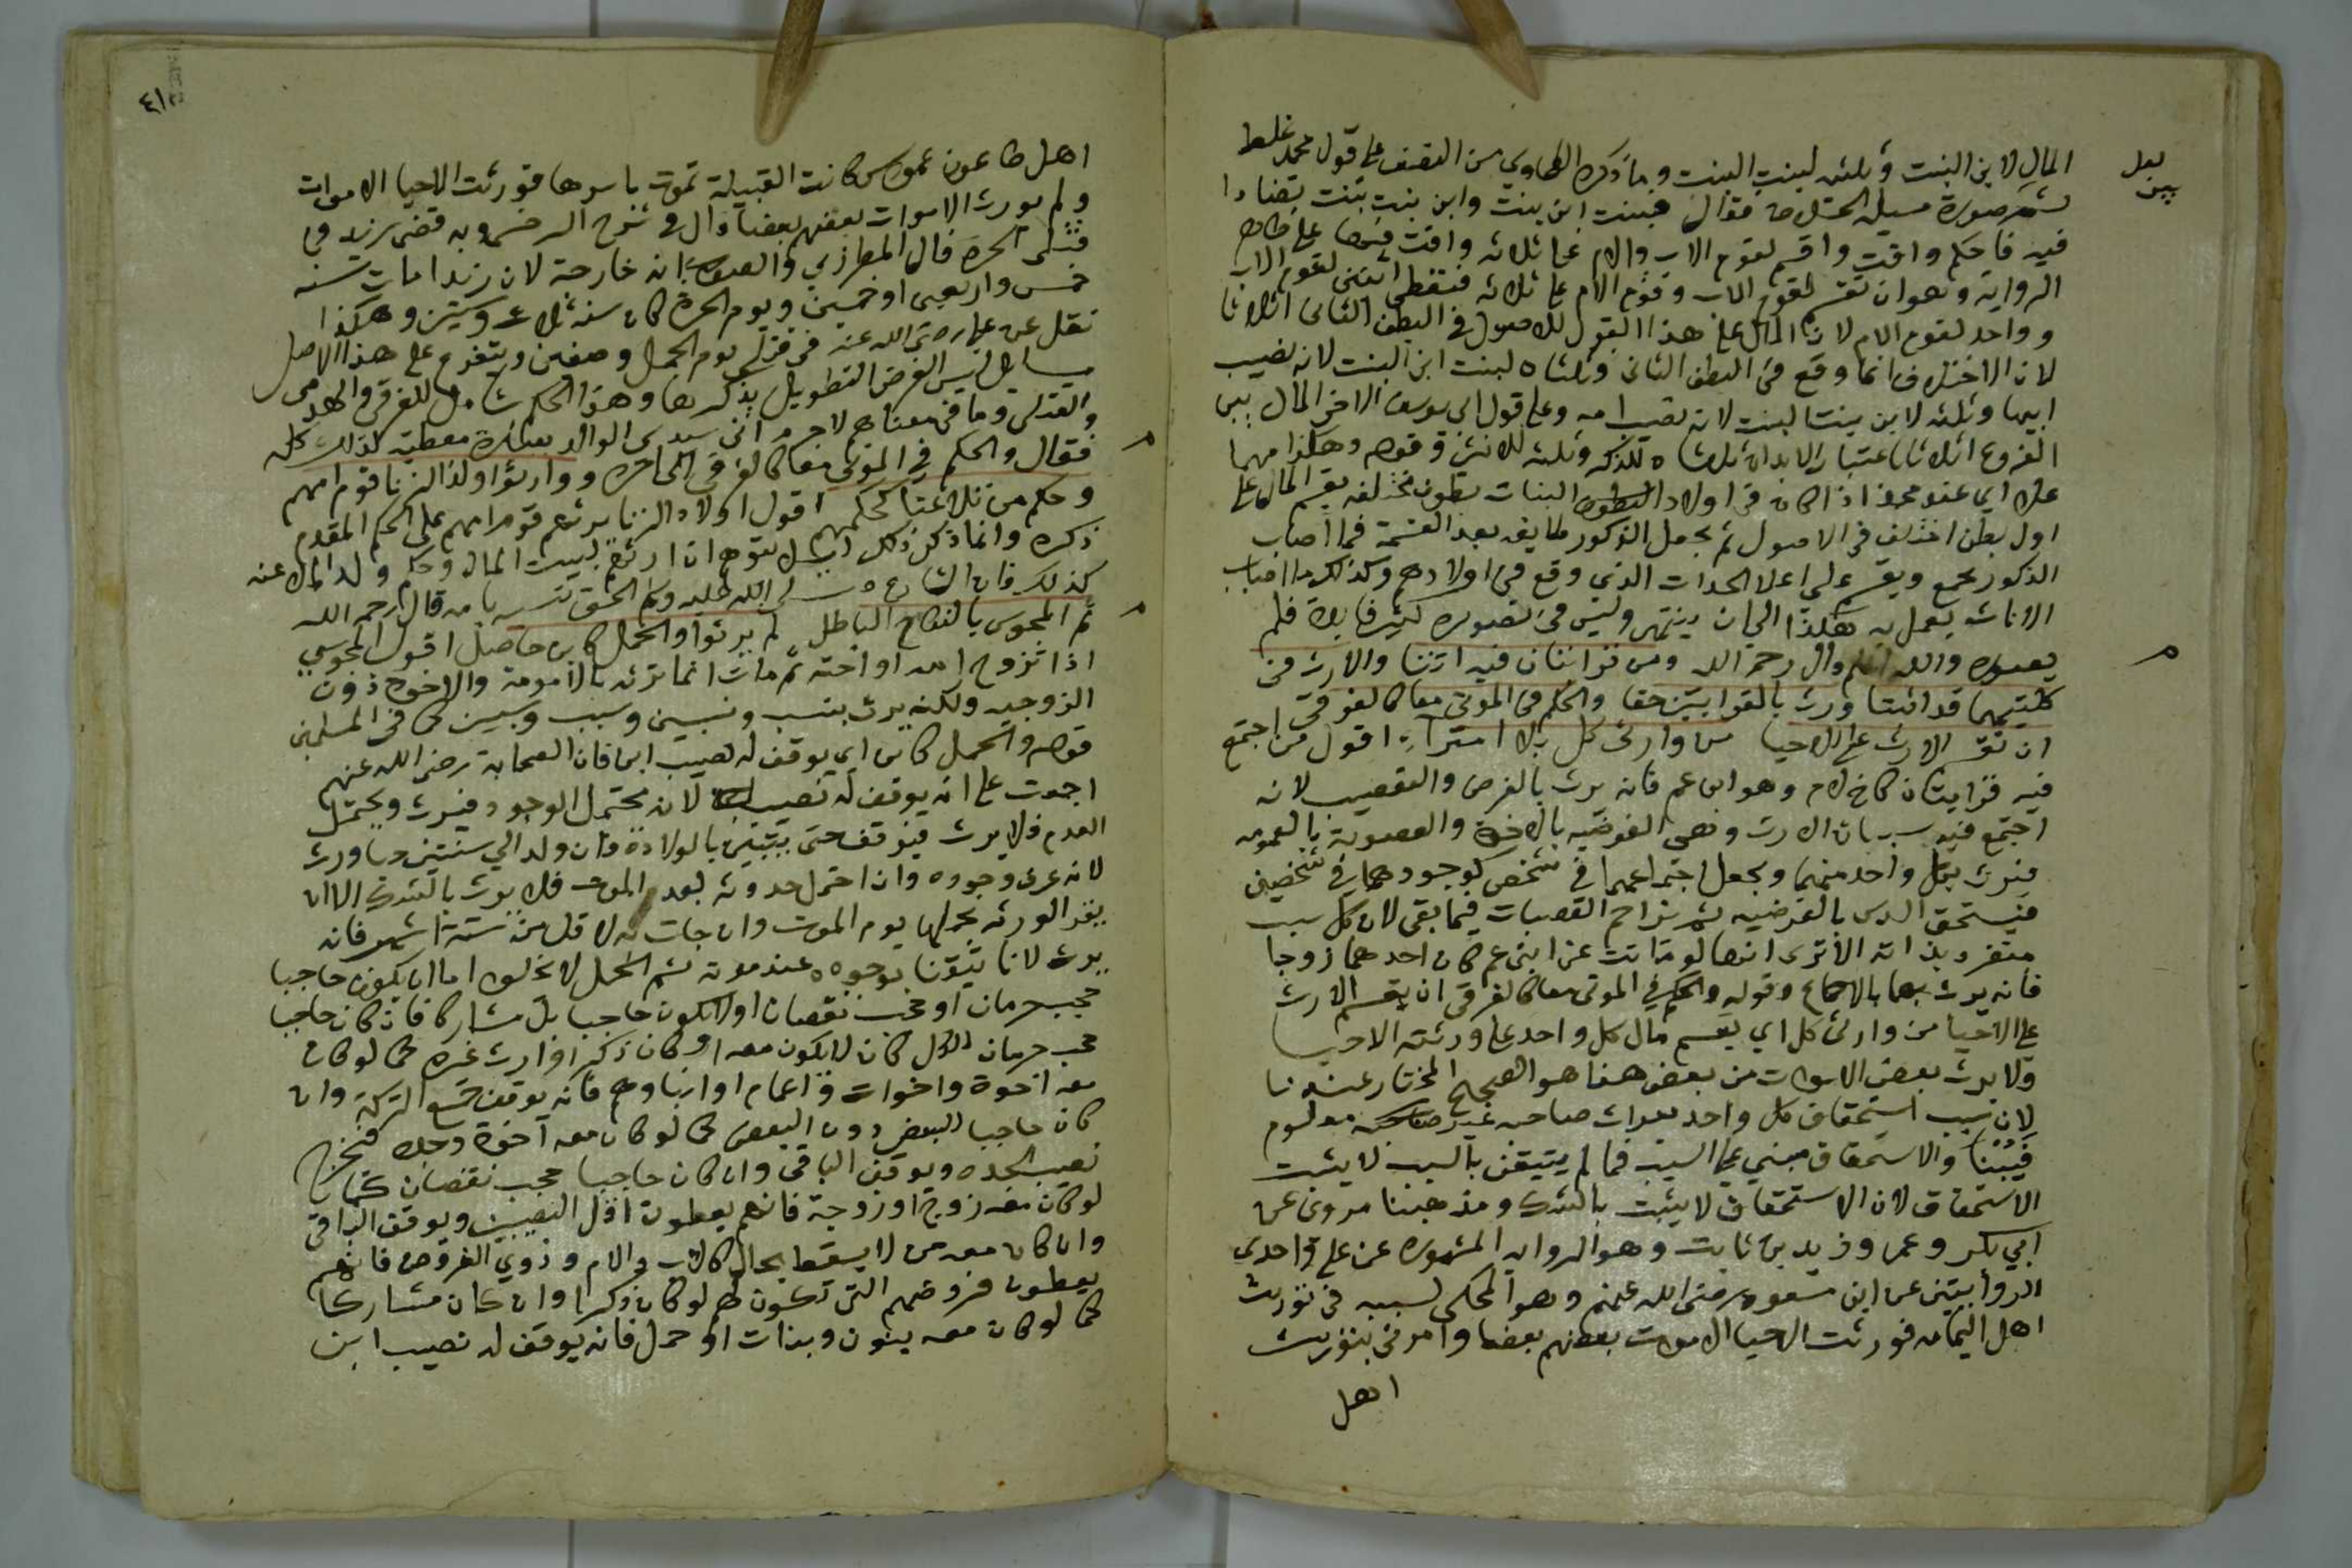 المال لابن البنت وثلثه لبنت البنت وما ذكره الطحاوي من النصف على قول محمد غلط
لعل
يبين
ثم صورة مسيلة فقال فبنت ابن بنت وابن بنت بنت
فيه فاحكم وافت واقسم لقوم الاب والام على ثلاثة وافت
الرواية وهو ان تقسم لقوم الاب وقوم الام على ثلاثة فتعطى اثنتى لقوم الاب
وواحد لقوم الام لان المال على هذا القول للاصول في البطن الثاني اثلاثا
لان الاختلاف انما وقع في البطن الثاني وثلثاه لبنت ابن البنت لانه نصيب
ابيها وثلثه لابن بنت البنت لانه نصيب امه وعلى قول ابي يوسف الاخر المال بين
الفروع اثلاثا باعتبار الابدان ثلثاه للذكر وثلثه للانثى وقوله وهكذا مهما
علا اي عند محمد اذا كان في اولاد البنات بطون مختلفه يقسم المال على
اول بطن اختلف في الاصول ثم يجعل الذكور طايفه بعد القسمة فما اصاب
الذكور يجمع ويقسم على اعلا الذي وقع في اولادهم وكذلك ما اصاب
الاناث يعمل به هكذا الى ان ينتهى وليس في تصويره كثير فايدة فلم
يصوره والله اعلم قال رحمه الله ومن قرابتان فيه اتتا والارث في
كلتيهما قد اثبتا ورث بالقرابتين حقا والحكم في الموتى معا كالغرقى
ان تقسم الارث على الاحيا من وارثى كل بلا امتراء اقول من اجتمع
فيه قرابتان كاخ لام وهو ابن عم فانه يرث بالفرض والتعصيب لانه
اجتمع فيه سببان الارث وهى الفرضيه بالاخوة والعصوبة بالعمومه
فيرث بكل واحد منهما ويجعل اجتماعهما في شخص كوجودهما في شخصين
فيستحق السدس بالفرضيه ثم يزاحم العصبات فيما بقى لان كل سبب
متفرد بذاته الا ترى انها لو ماتت عن ابنى عم كان احدهما زوجا
فانه يرث بهما بالاجماع وقوله والحكم في الموتى معا كالغرقى ان يقسم الارث
على الاحيا من وارثى كل اي يقسم مال كل واحد على ورثته الاحيا
ولا يرث بعض الاموات من بعض هذا هو الصحيح المختار عندنا
لان سبب استحقاق كل واحد ميراث صاحبه غير معلوم
يقينا والاستحقاق مبني على السبب فما لم يتيقن بالسبب لا يثبت
الاستحقاق لان الاستحقاق لا يثبت بالشك ومذهبنا مروى عن
ابي بكر وعمر وزيد بن ثابت وهو الرواية المشهورة عن على واحدى
الروايتين عن ابن مسعود رضى الله عنهم وهو المحكى في توريث
اهل اليمامه فورثت الاحيا الاموات بعضهم بعضا وامرنى بتوريث
اهل
٤١٠
اهل طاعون عمواس كانت القبيلة تموت باسرها فورثت الاحيا الاموات
ولم يورث الاموات بعضهم بعضا قال في شرح السرخسى وبه قضى زيد في
قتلى الحرة قال المطرزي والصواب انه خارجة لان زيدا مات سنه
خمس واربعين او خمسين ويوم الحرة كان سنه ثلاث وستين وهكذا
نقل عن على رضى الله عنه في قتلى يوم الجمل وصفين ويتفرع على هذا الاصل
مسايل ليس الغرض التطويل بذكرها وهذا الحكم شامل للغرقى والهدمى
والقتلى وما في معناهم لاجرم اتى سيدي الوالد بعبارة معطية لذلك كله
فقال والحكم في الموتى معا كالغرقى الى اخره ووارثوا ولد الزنا قوم امهم
وحكم من تلاعنا كحكمهم اقول اولاد الزنا يرثهم قوم امهم على الحكم المقدم
ذكره وانما ذكر ذلك ليلا يتوهم ان ارثهم لبيت المال وحكم ولد الملاعنه
كذلك فان الشارع صلى الله عليه وسلم الحق نسبه بامه قال رحمه الله
ثم المجوس بالنكاح الباطل لم يرثوا والحمل كابن حاصل اقول المجوسي
اذا تزوج امه او اخته ثم مات انما ترثه بالامومة والاخوة دون
الزوجيه ولكنه يرث بنسب ونسبين وسبب وسببين كما في المسلمين
قوله والحمل كابن اي يوقف له نصيب ابن فان الصحابة رضى الله عنهم
اجمعت على انه يوقف له نصيب لانه يحتمل الوجود فيرث ويحتمل
العدم فلا يرث فيوقف حتى يتبين بالولادة فان ولد الى سنتين حيا ورث
لانه عرف وجوده وان احتمل حدوثه بعد الموت فلا يرث بالشك الا ان
يقر الورثه بحملها يوم الموت وان جات به لاقل من ستة اشهر فانه
يرث لانا تيقنا بوجوده عند موته ثم الحمل لا يخلوا اما ان يكون حاجبا
حجب حرمان او حجب نقصان او لا يكون حاجبا بل مشاركا فان كان حاجبا
حجب حرمان للكل كان لا يكون معه او كان ذكرا وارث غيره كما لو كان
معه اخوة واخوات واعمام او ابناوهم فانه يوقف جميع التركة وان
كان حاجبا للبعض دون البعض كما لو كان معه اخوة وجدة
نصيب الجده ويوقف الباقى وان كان حاجبا حجب نقصان كما
لو كان معه زوج او زوجة فانهم يعطون اقل النصيبين ويوقف الباقى
وان كان معه من لا يسقط بحال كالاب والام وذوي الفروض فانهم
يعطون فروضهم التى تكون لهم لو كان ذكرا وان كان مشاركا
كما لو كان معه بنون وبنات او حمل فانه يوقف له نصيب ابن